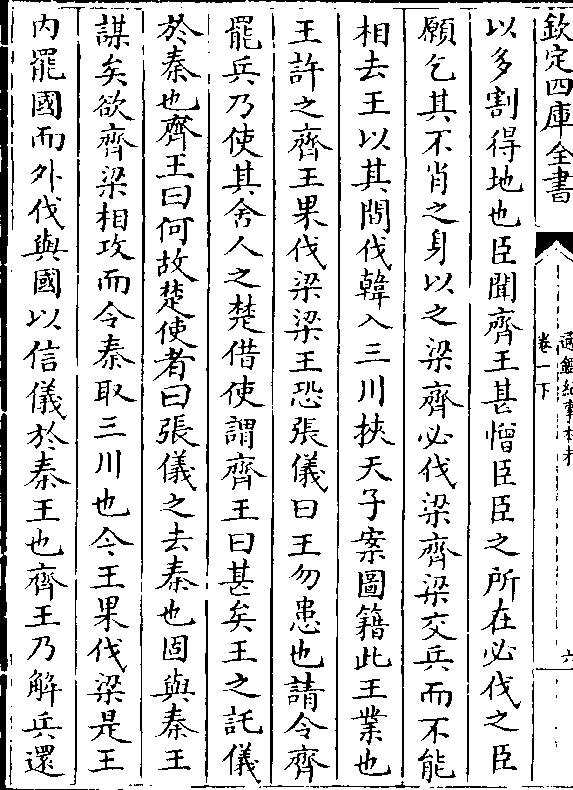 欽定四庫全書
通鑑紀事本末
卷一下
六
以多割得地也臣聞齊王甚憎臣臣之所在必伐之臣
願乞其不肖之身以之梁齊必伐梁齊梁交兵而不能
相去王以其間伐韓入三川挾天子案圖籍此王業也
王許之齊王果伐梁梁王恐張儀曰王勿患也請令齊
罷兵乃使其舍人之楚借使謂齊王曰甚矣王之託儀
於秦也齊王曰何故楚使者曰張儀之去秦也固與秦王
謀矣欲齊梁相攻而令秦取三川也今王果伐梁是王
内罷國而外伐與國以信儀於秦王也齊王乃解兵還